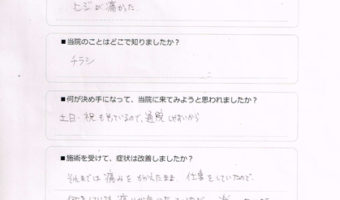 ヒジが痛かった
■当院のことはどこで知りましたか?
チラシ
■何が決め手になって、当院に来てみようと思われましたか?
土日・祝もやっているので、通院しやすいから
■施術を受けて、症状は改善しましたか?
それまでは痛みをかかえたまま、仕事をしていたので、